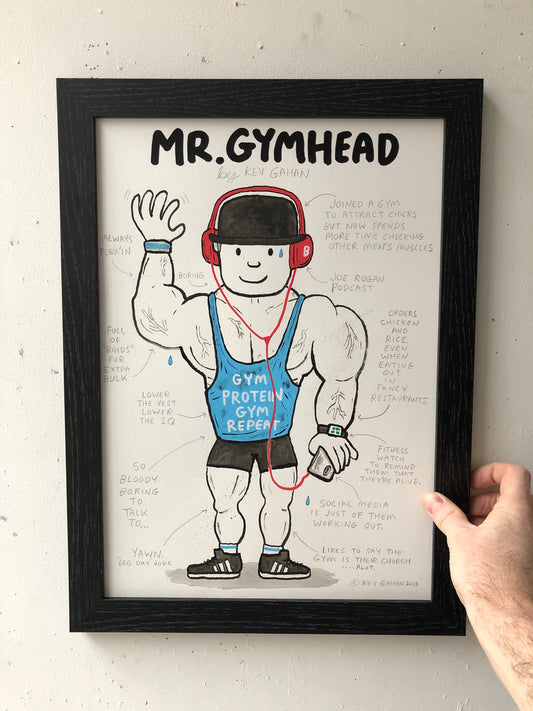 MR. GYMHEAD
by KEV GAHAN
JOINED A GYM
TO ATTRACT CHICKS
BUT NOW SPENDS
MORE TIME CHECKING
OTHER MEN'S MUSCLES
ALWAYS
FLEX'IN
BORING
B
JOE ROGAN
PODCAST
FULL
OF
"ROIDS"
FOR
EXTRA
BULK
ORDERS
CHICKEN
AND
RICE,
EVEN
WHEN
EATING
OUT
IN
FANCY
RESTAURANTS
GYM
PROTEIN
GYM
REPEAT
LOWER
THE VEST
LOWER
THE IQ
FITNESS
WATCH
TO REMIND
THEM THAT
THEY'RE ALIVE.
SO
BLOODY
BORING
TO
TALK
TO...
SOCIAL MEDIA
IS JUST OF THEM
WORKING OUT.
YAWN.
'LEG DAY' JOKE
LIKES TO SAY THE
GYM IS THEIR CHURCH
....ALOT.
© KEV GAHAN. 2023